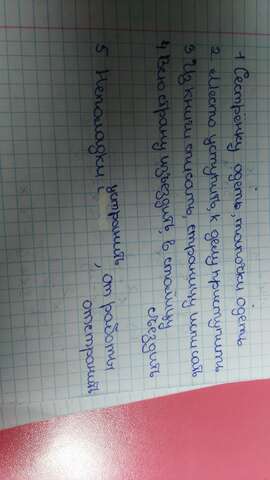 1 Сестрёнку одеть, тапочки одеть
2 Место уступить, к делу приступить
3 Из книги списать, страницу списать
4 Всю страну изъездить, в столицу
съездить
5 Неполадки устранить, от работы
отстранить